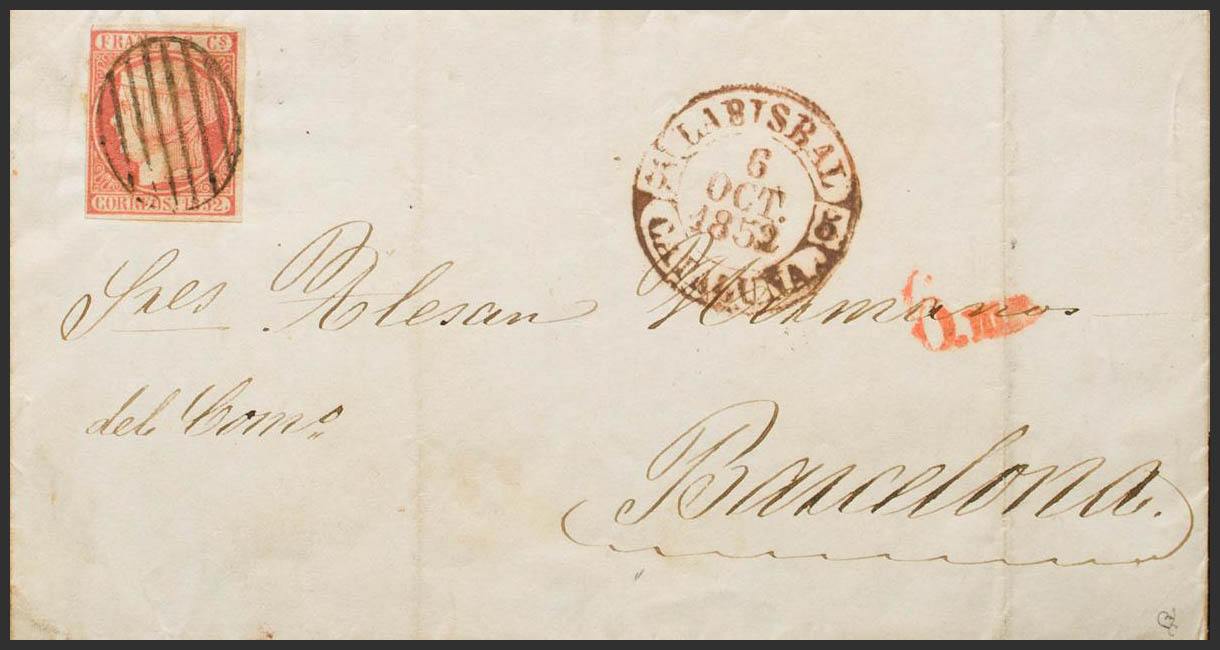 FRANCO 6 Cs
CORREOS 1852
LABISBAL
6
OCT.
1852
5
CATALUÑA.
Sres Alesan Hermanos
del Como
Barcelona.